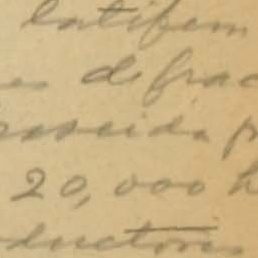 latifun
es de frac
roseida p
20,000 h
ductores